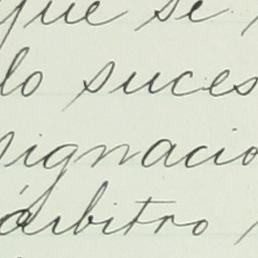 que se
lo suces
signacio
árbitro